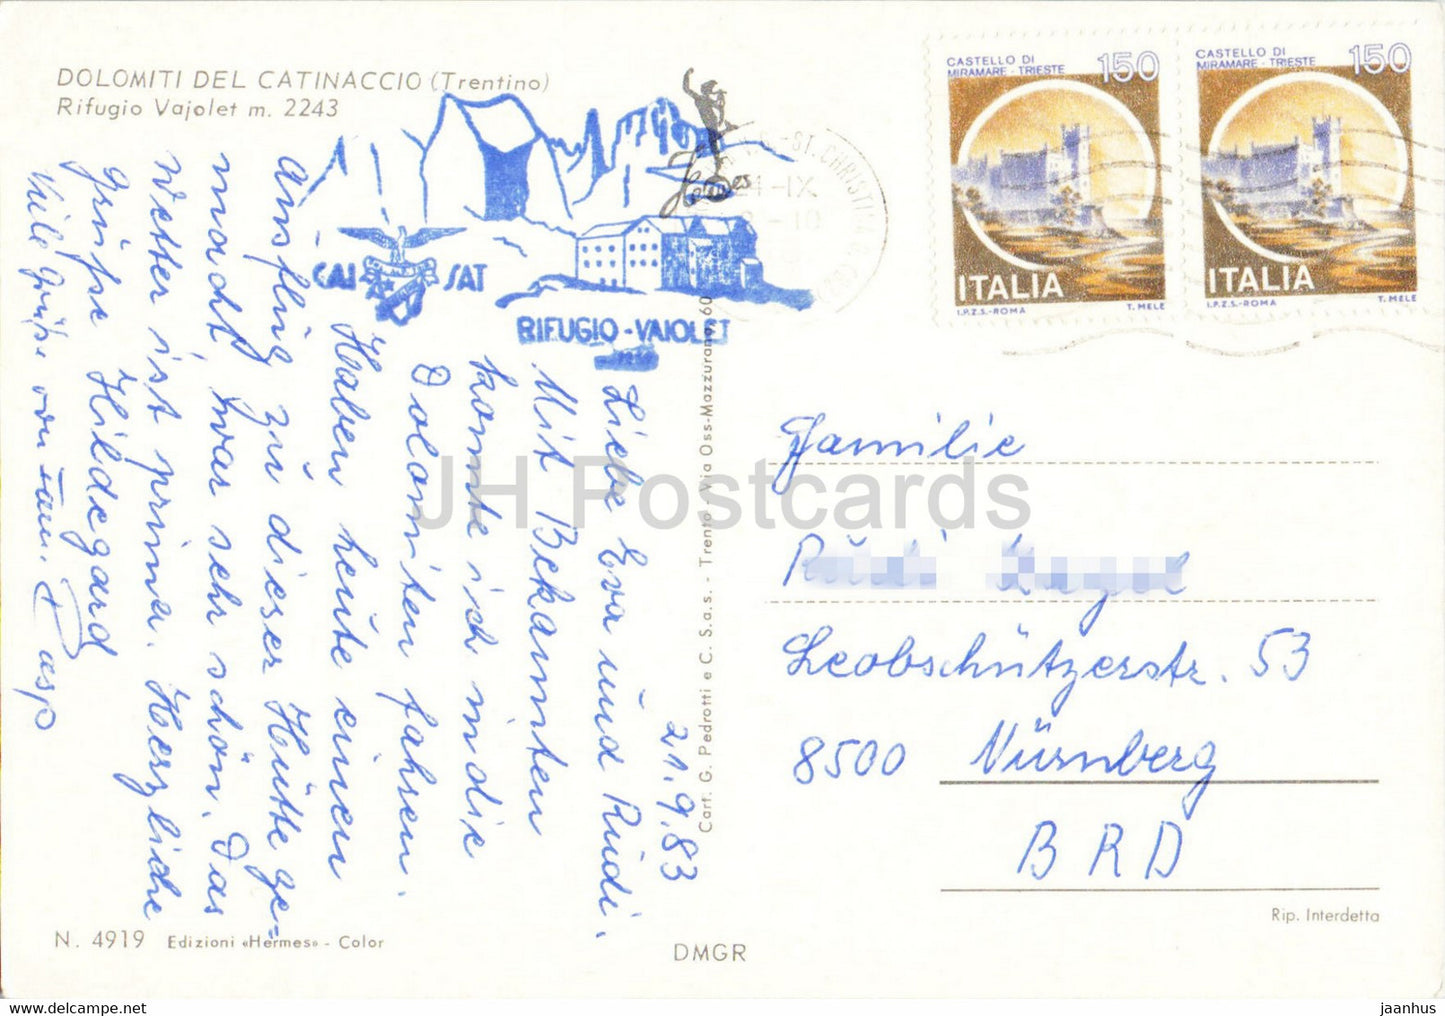 DOLOMITI DEL CATINACCIO (Trentino)
Rifugio Vajolet m. 2243
CAI SAT
RIFUGIO - VAIOLET
Hermes
ST. CHRISTINA
-IX
CASTELLO DI
MIRAMARE - TRIESTE
150
ITALIA
I.P.Z.S.-ROMA T. MELE
CASTELLO DI
MIRAMARE - TRIESTE
150
ITALIA
I.P.Z.S.-ROMA T. MELE
21.9.83
Liebe Eva und Rudi.
Mit Bekannten
konnte ich in die
Dolomiten fahren.
Haben heute einen
Ausflug zu dieser Hütte ge=
macht, war sehr schön. Das
Wetter ist prima. Herzliche
Grüße Hildegard
Viele Grüße von Fam. Rasp
Familie
Leobschützerstr. 53
8500 Nürnberg
BRD
Cart. G. Pedrotti e C. S.a.s. - Trento - Via Oss-Mazzurana, 60
N. 4919 Edizioni «Hermes» - Color
DMGR
Rip. Interdetta
JH Postcards
https://www.hippostcard.com/store/jaanhus
jaanhus